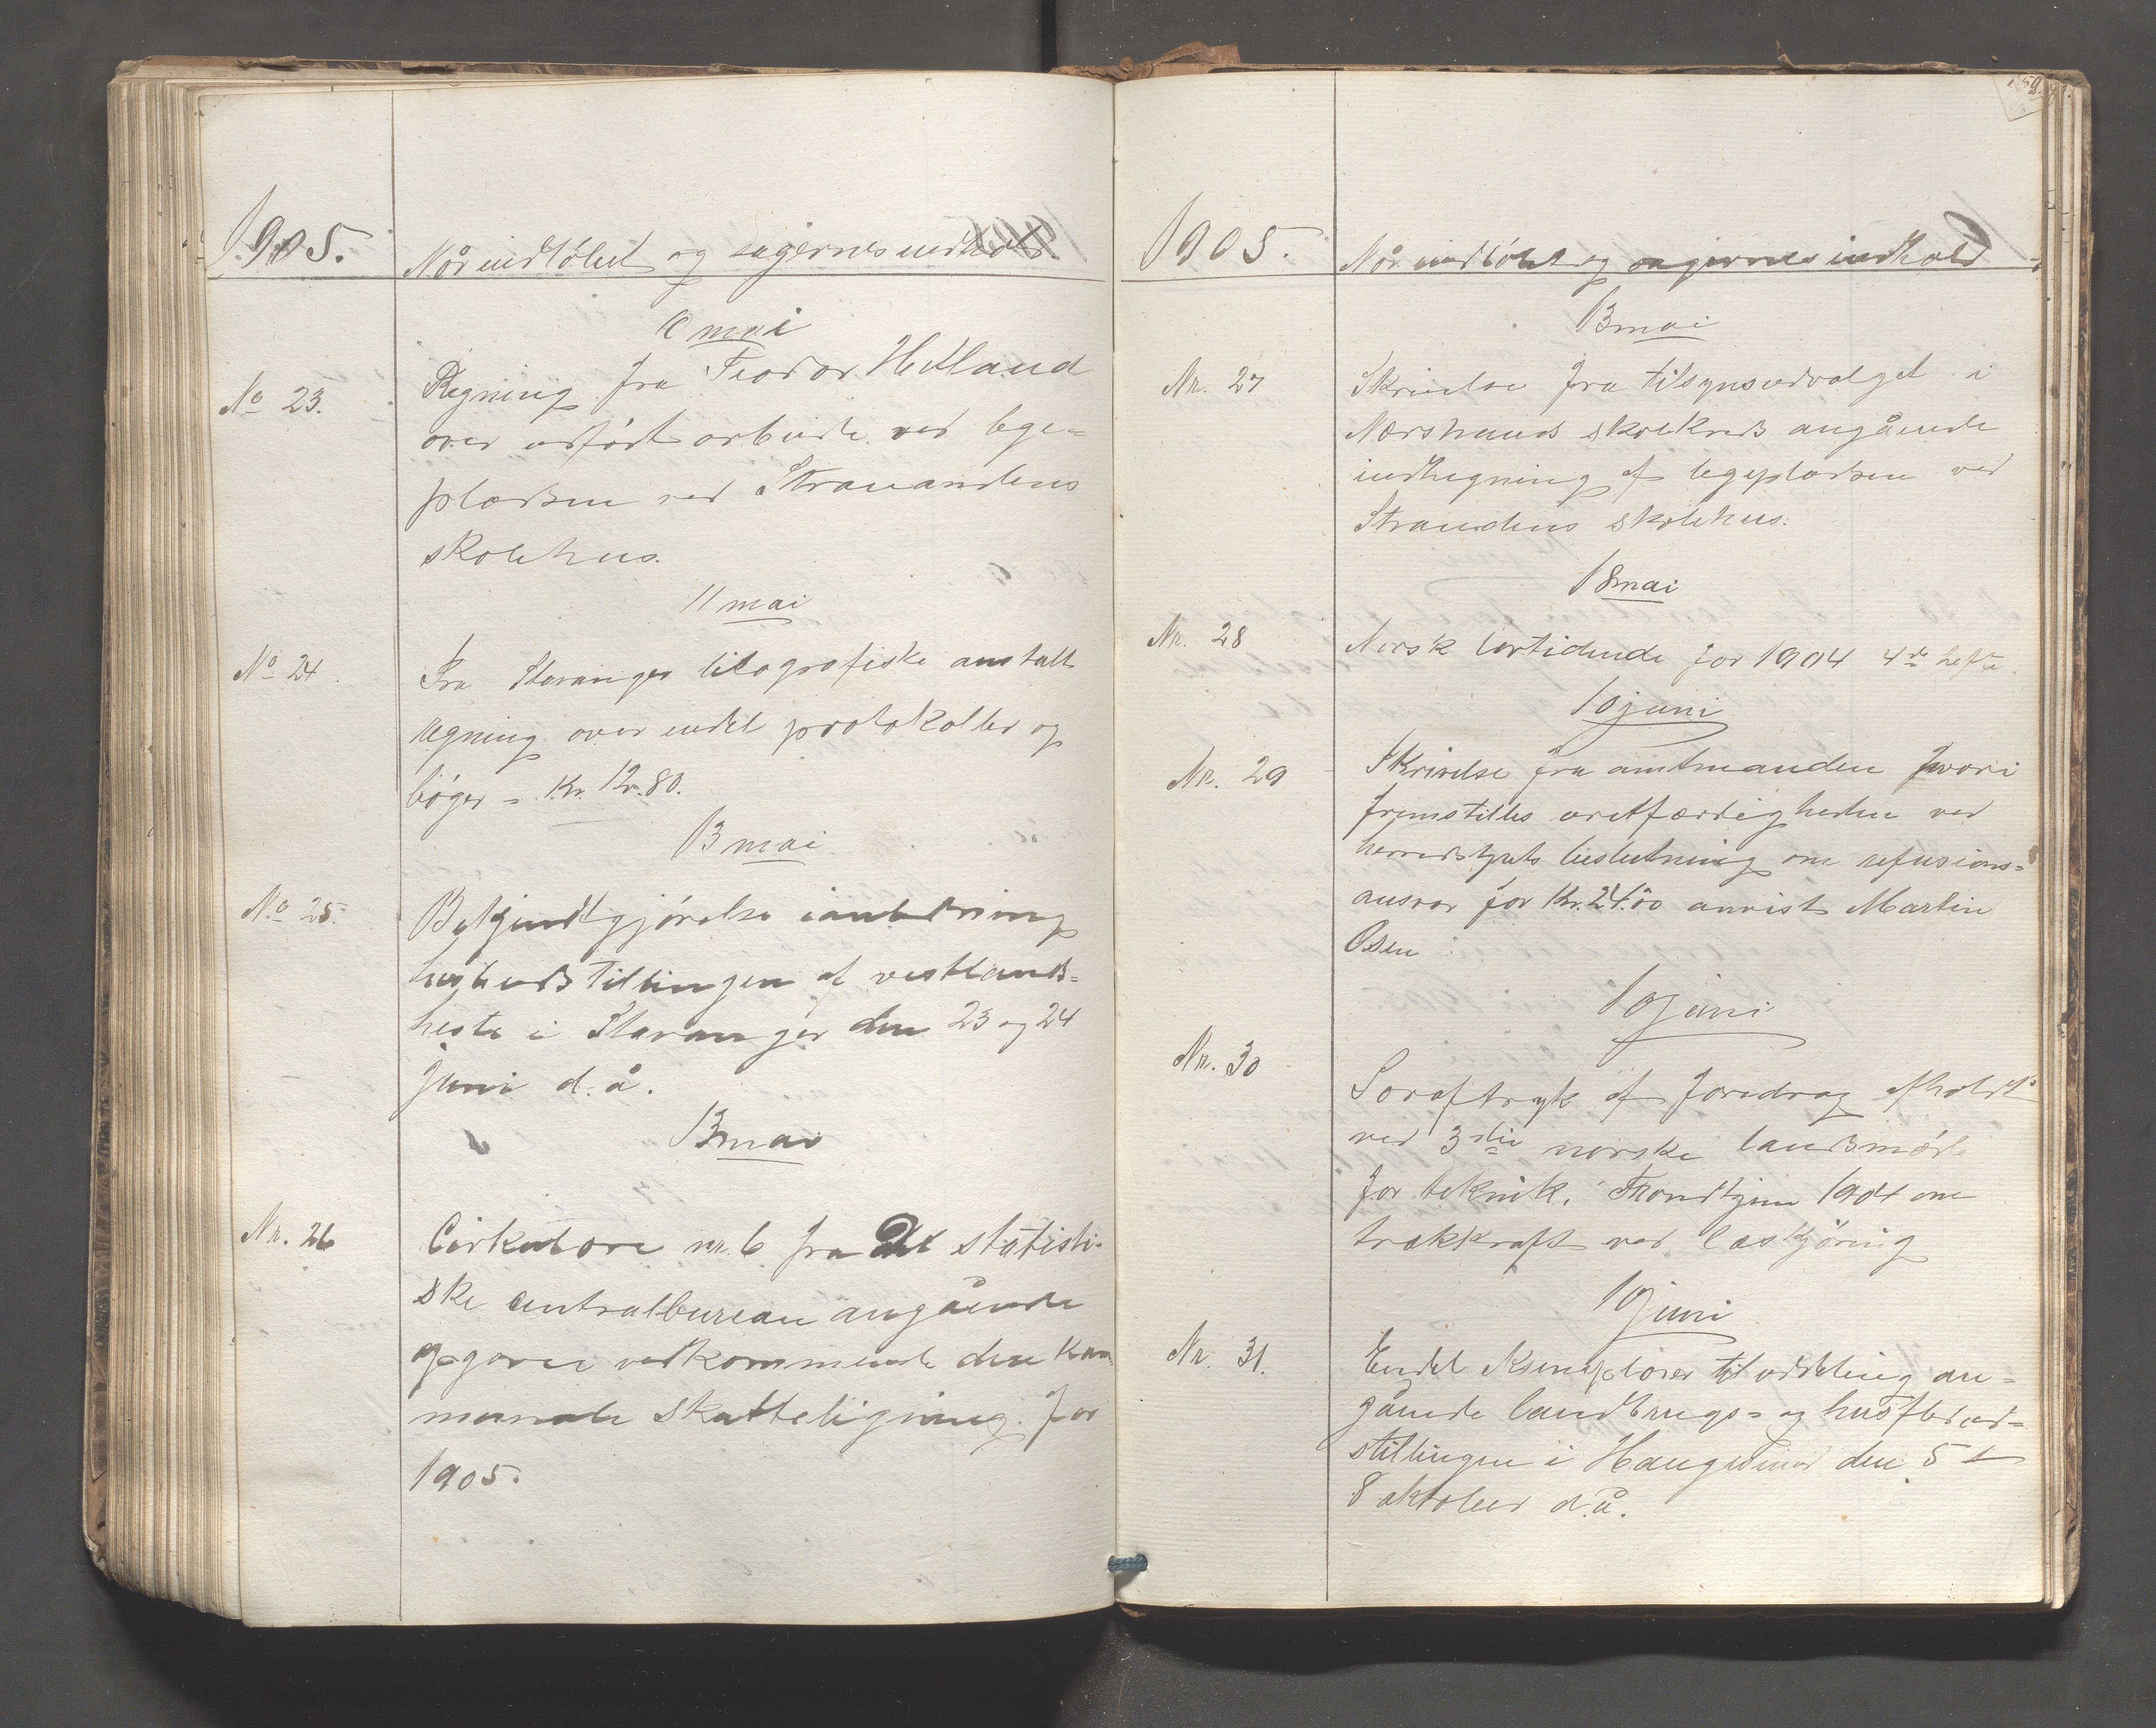 1905.
Når indløbet og sagernes indhold
10 mai
No 23.
Regning fra Teodor Hetland
over udført arbeide ved lege=
pladsen ved Strandens
skolehus.
11 mai
No 24
Fra Stavanger litografiske anstalt
regning over endel protokoller og
bøger = Kr. 12.80.
13 mai
No 25.
Bekjendtgjørelse
af vestlands=
heste i Stavanger den 23 og 24
juni d. å.
13 mai
Nr. 26
Cirkulære nr. 6 fra det statisti-
ske centralbureau angående
opgaver vedkommende den kom
munale skatteligning for
1905.
1905.
Når indløbet og sagernes indhold
13 mai
Nr. 27
Skrivelse fra tilsynsudvalget i
Nærstrands skolekreds angående
indhegning af legepladsen ved
Strandens skolehus.
18 mai
Nr. 28
Norsk lovtidende for 1904 4de hefte
10 juni
Nr. 29
Skrivelse fra amtmanden hvori
fremstilles uretfærdigheden ved
herredstyrets beslutning om refusions=
ansvar for Kr. 24.00 anvist Martin
Osen
10 juni
Nr. 30
Særaftryk af foredrag afholdt
ved 3die norske landsmøde
for teknik, Trondhjem 1904 om
trækkraft ved læskjøring
10 juni
Nr. 31.
Endel eksemplarer til uddeling an=
gående landbrugs= og husflidsud=
stillingen i Haugesund den 5 t
8 oktober d. å.